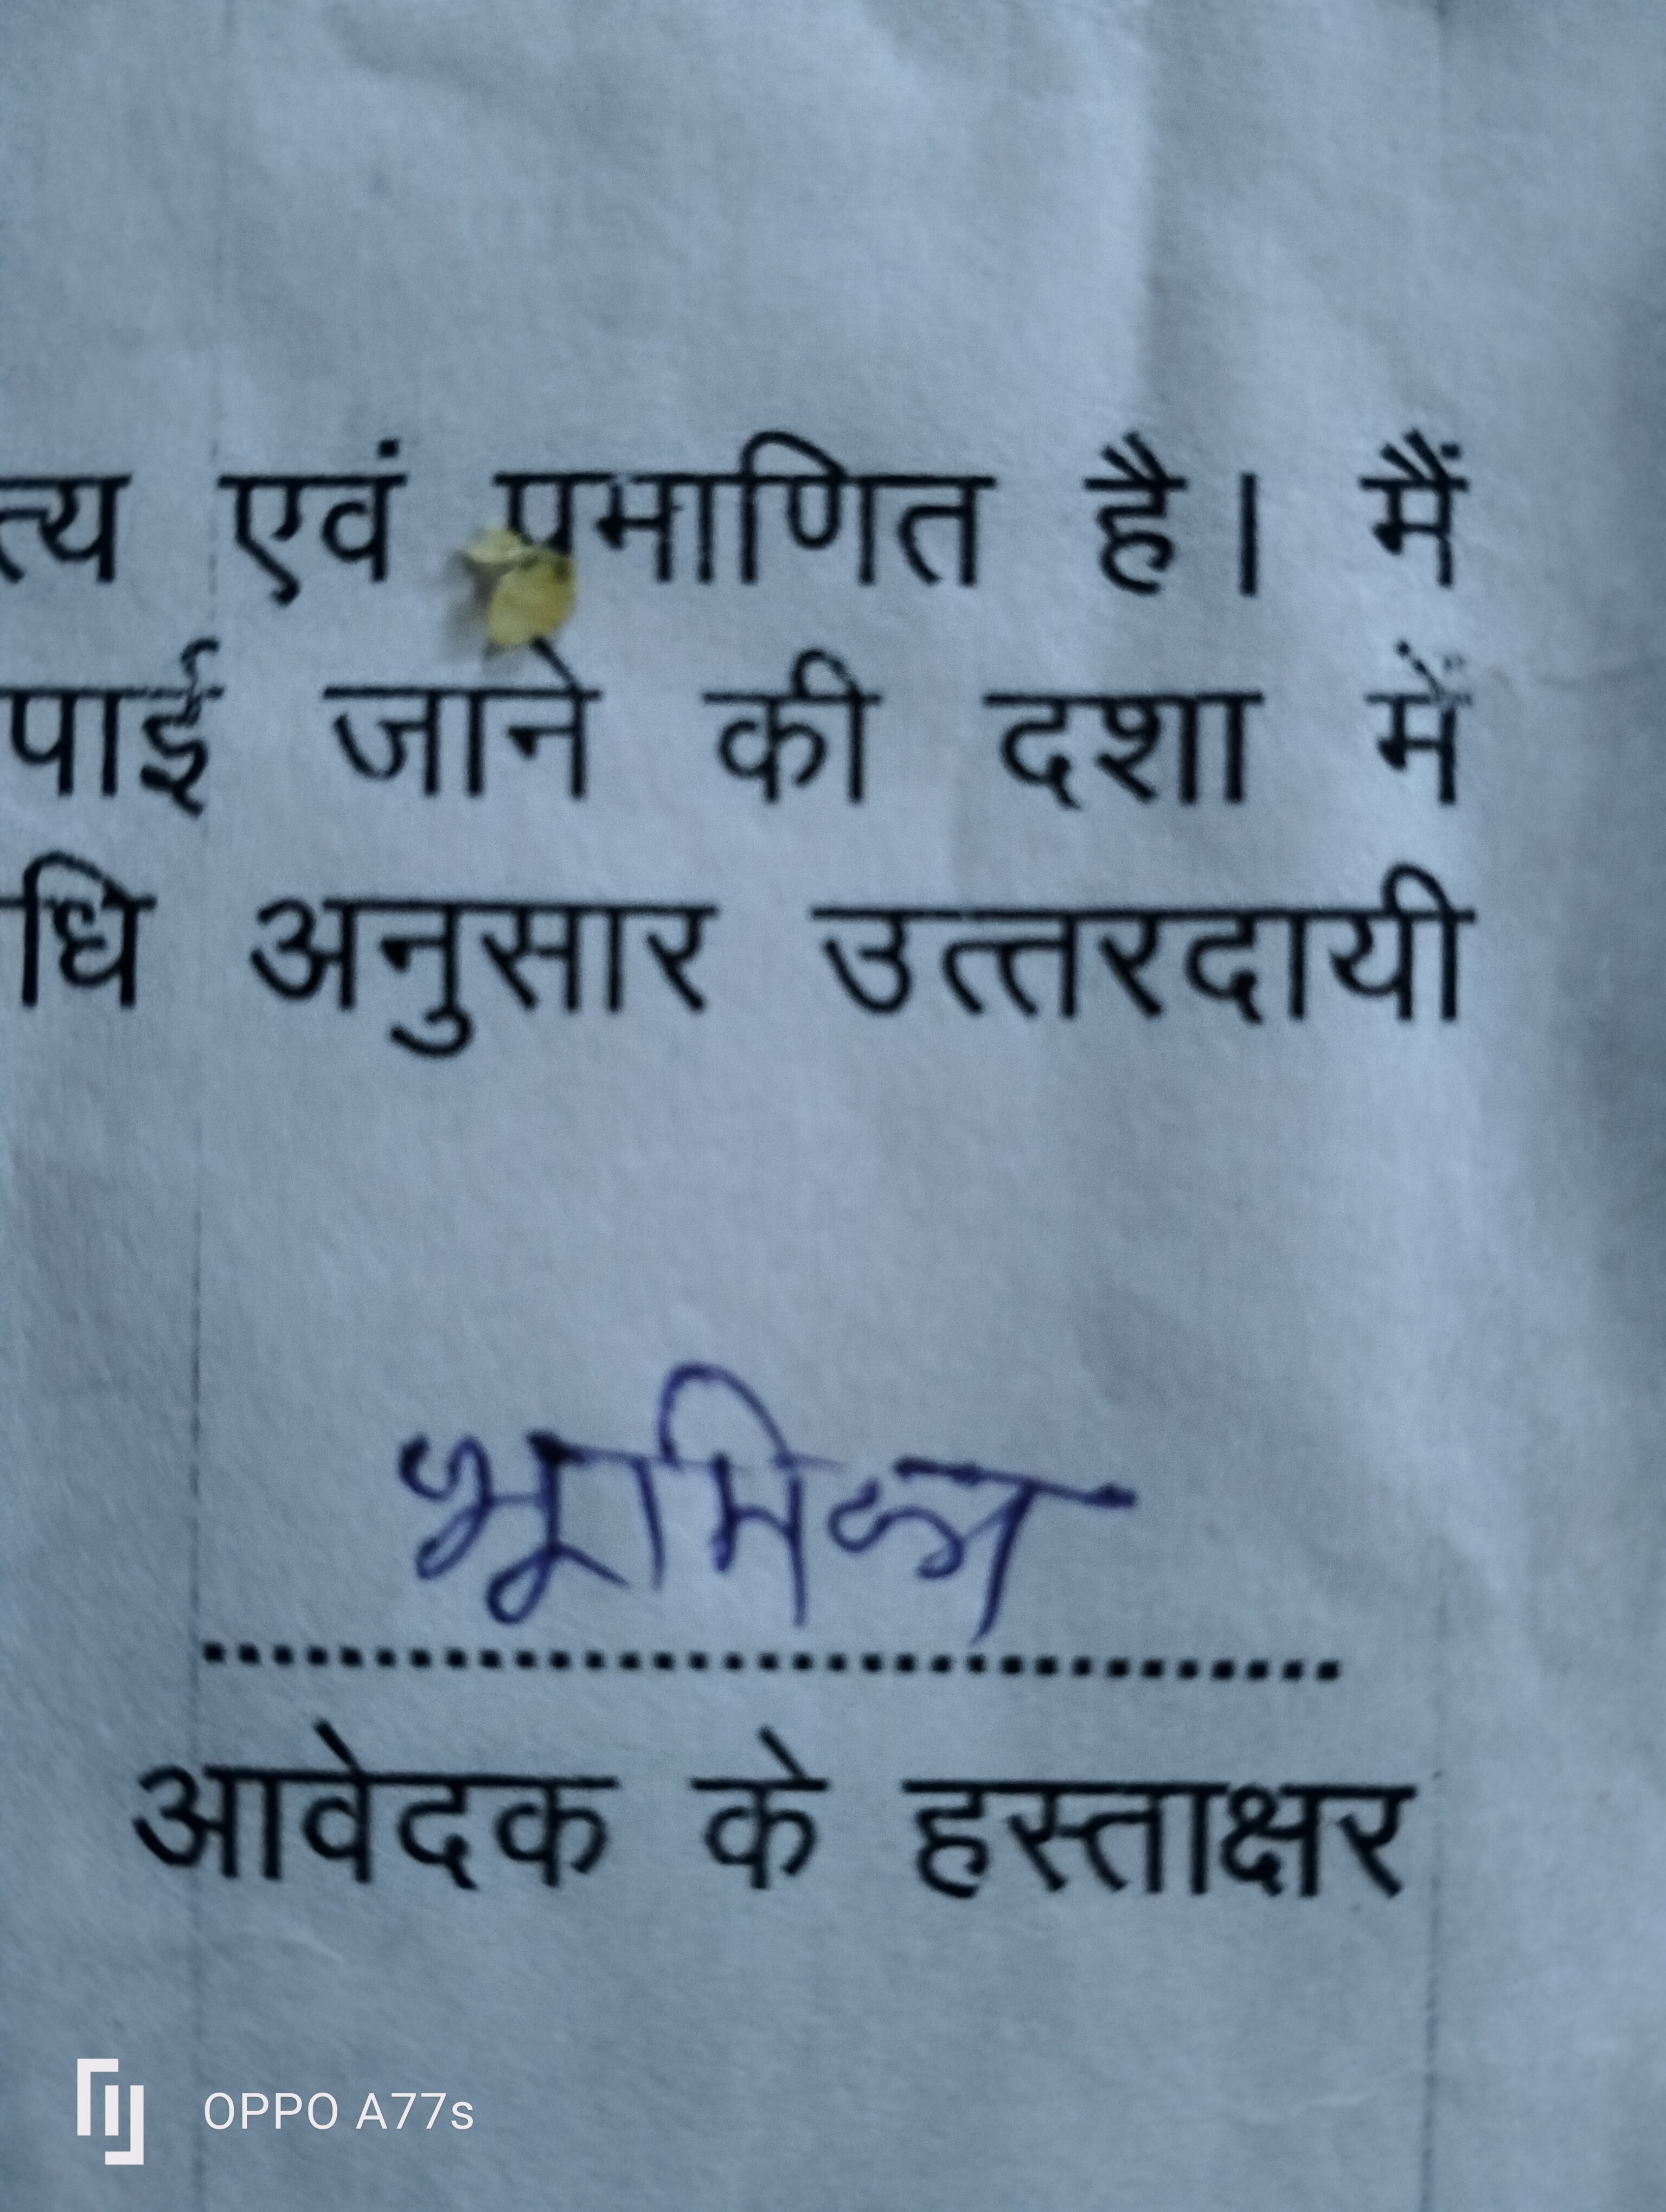 त्य एवं प्रमाणित है। मैं
पाई जाने की दशा में
धि अनुसार उत्तरदायी
आवेदक के हस्ताक्षर
OPPO A77s